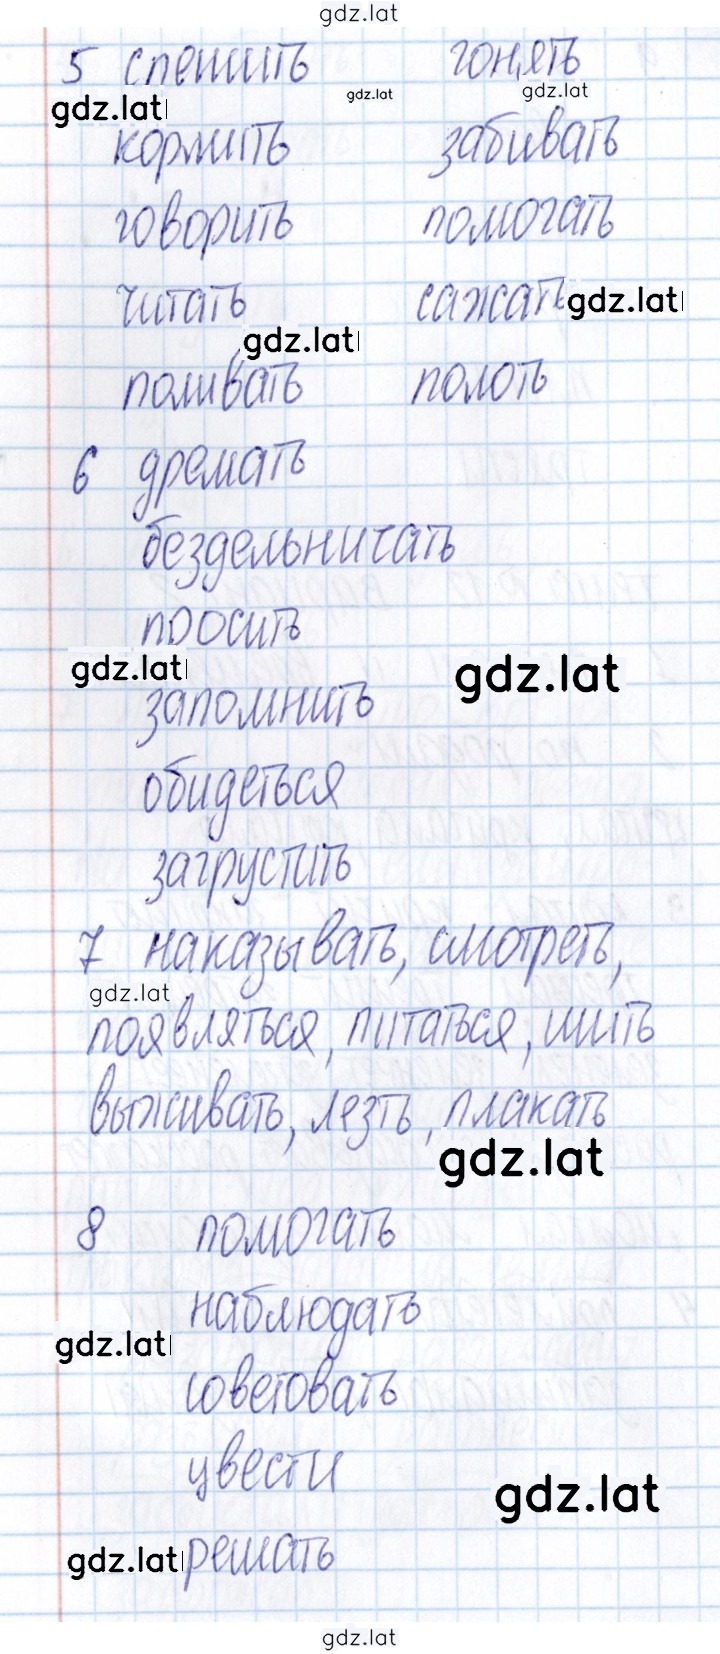 gdz.lat
5 спешить гонять
gdz.lat gdz.lat gdz.lat
кормить забивать
говорить помогать
читать сажать gdz.lat
gdz.lat
поливать полоть
6 дремать
бездельничать
просить
gdz.lat gdz.lat
запомнить
обидеться
загрустить
7 наказывать, смотреть,
gdz.lat
появляться, питаться, шить
выживать, лезть, плакать
gdz.lat
8 помогать
наблюдать
gdz.lat
советовать
цвести
gdz.lat
gdz.lat решать
gdz.lat